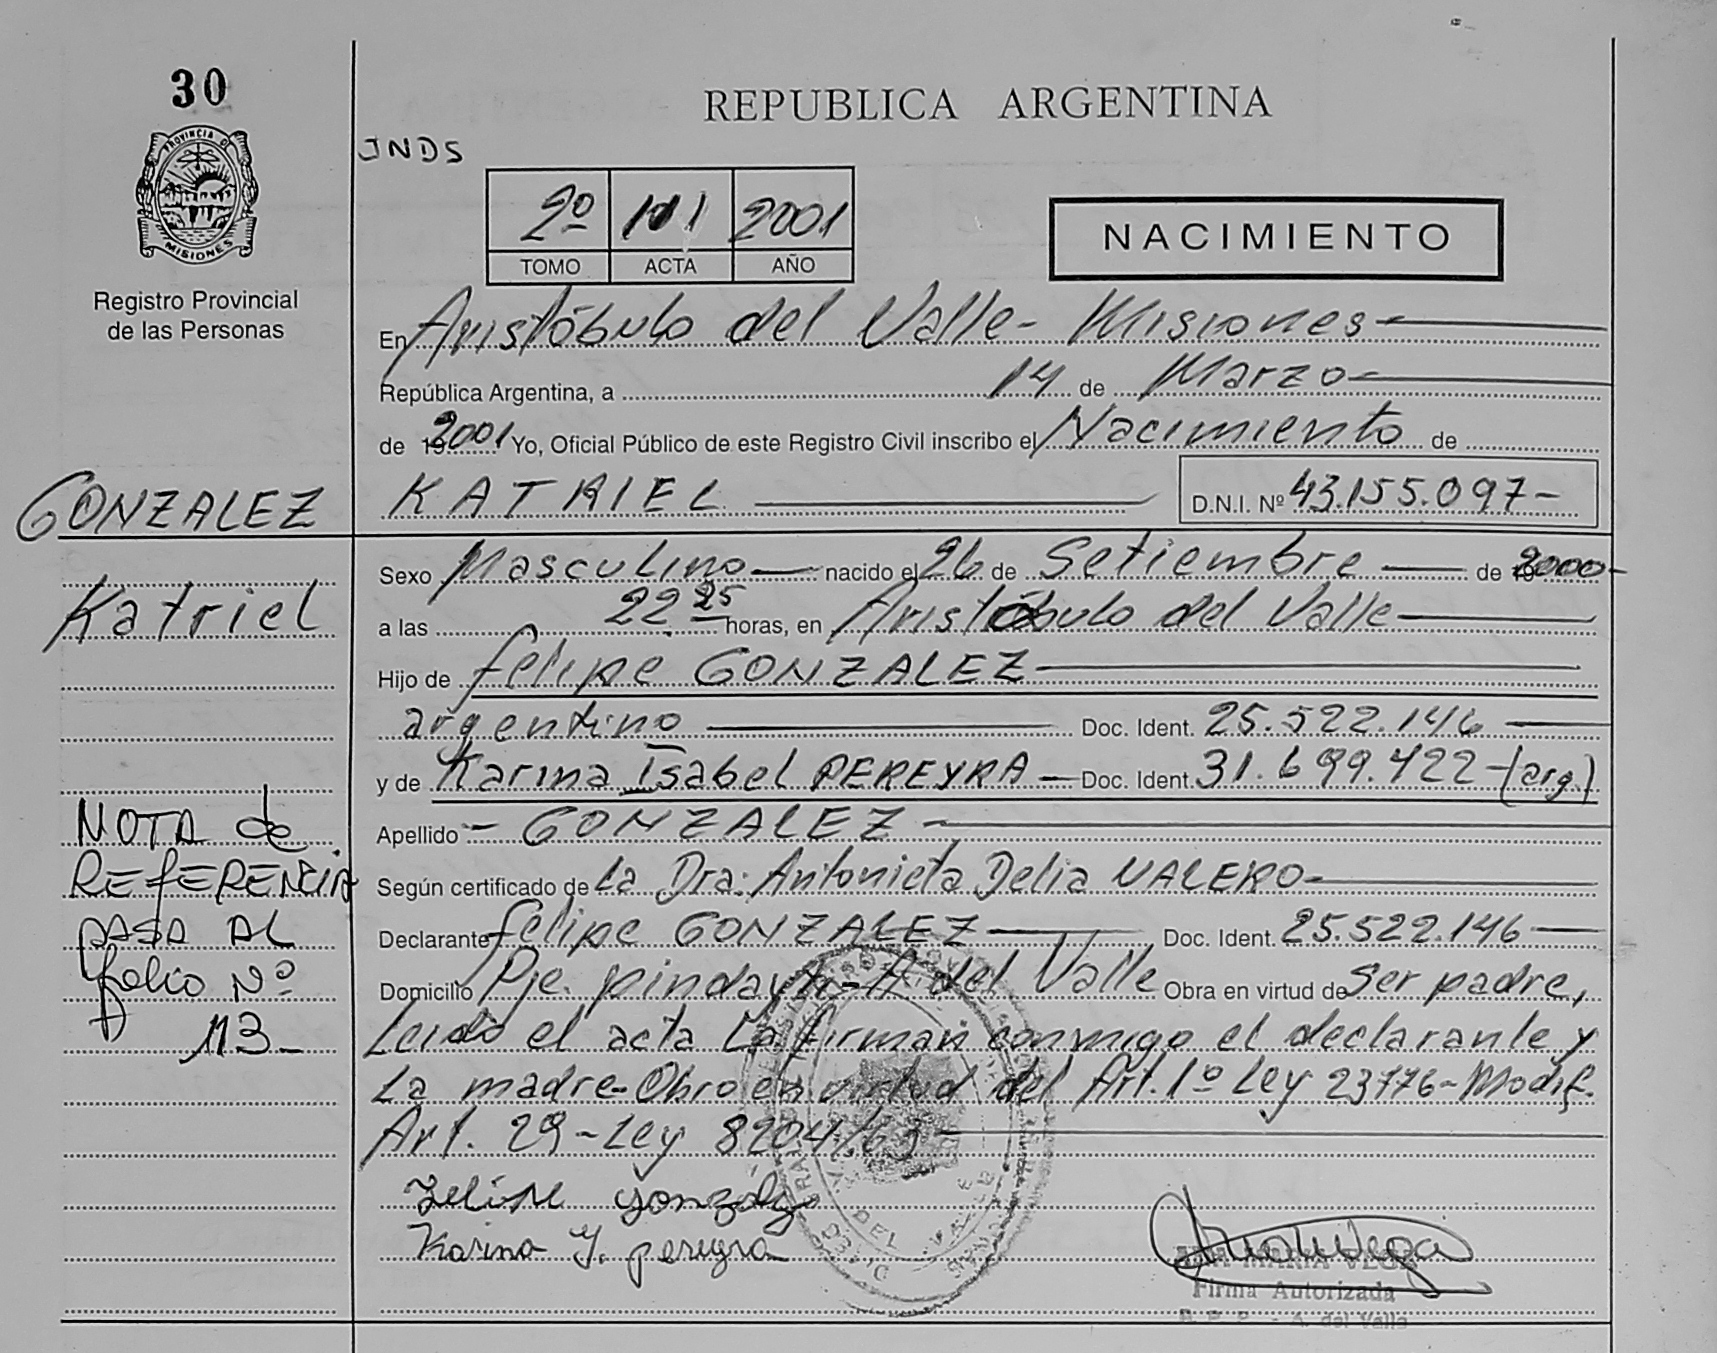 30
PROVINCIA DE
MISIONES
Registro Provincial
de las Personas
REPUBLICA ARGENTINA
JNDS
2º 101 2001
TOMO ACTA AÑO
NACIMIENTO
En Aristóbulo del Valle - Misiones -
República Argentina, a 14 de Marzo -
de 192001 Yo, Oficial Público de este Registro Civil inscribo el Nacimiento de
GONZALEZ
KATRIEL D.N.I. Nº 43.155.097-
Katriel
Sexo Masculino - nacido el 26 de Setiembre - de 192000-
a las 22 25 horas, en Aristóbulo del Valle -
Hijo de Felipe GONZALEZ -
argentino - Doc. Ident. 25.522.146 -
y de Karina Isabel PEREYRA - Doc. Ident. 31.699.422 - (arg.)
Apellido - GONZALEZ -
Según certificado de La Dra: Antonieta Delia VALERO -
Declarante Felipe GONZALEZ - Doc. Ident. 25.522.146 -
Domicilio Pje. pindayti - A del Valle Obra en virtud de Ser padre,
Leido el acta La firman conmigo el declarante y
La madre - Obro en virtud del Art. 1º Ley 23776 - Modif.
Art. 29 - Ley 8204/63 -
NOTA de
REFERENCIA
PASA AL
folio Nº
113 -
Felipe gonzalez
Karina Y. pereyra
ANA MARIA VEGA
Firma Autorizada
R. P. P. - A. del Valle